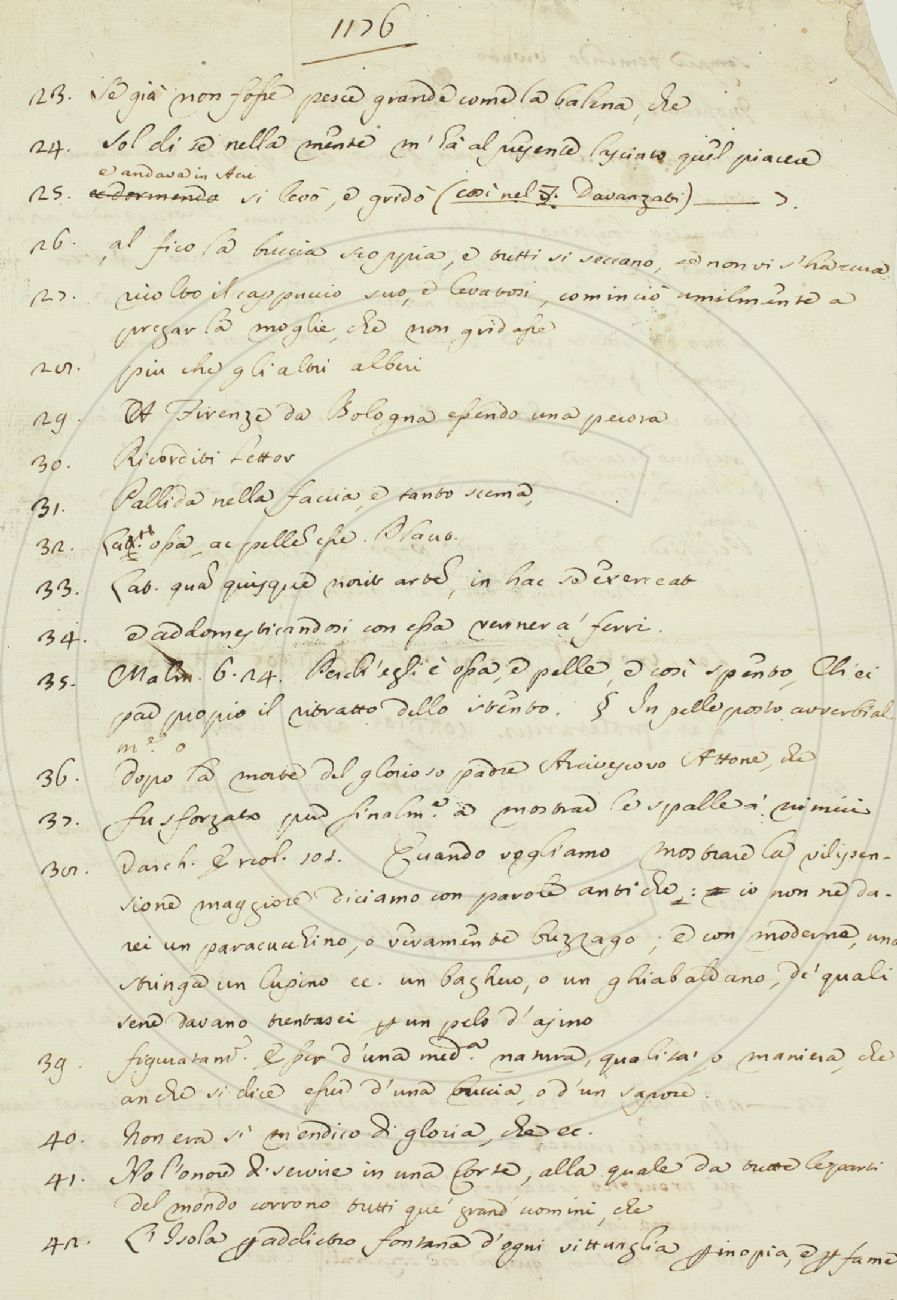 1176
23. Se già non fosse pesce grande come la balena, che
24. Sol di se nella mente m'ha al presente lasciato quel piacere
e andava in Aci
25. e dormendo si levò, e gridò (così nel T. Davanzati) —— 7.
26. al fico la buccia scoppia, e tutti si seccano, se non vi s'ha cura
27. ricolto il cappuccio suo, e levatosi, cominciò umilmente a
pregar la moglie, che non gridasse
28. più che gli altri alberi
29. A Firenze da Bologna essendo una pecora
30. Ricorditi Lettor
31. Pallida nella faccia, e tanto scema,
32. Lat. ossa, ac pellis esse. Plaut.
33. Lat. quā quisque norit artē, in hac se exerceat
34. e addomesticandosi con essa verrner a' ferri.
35. Malm. 6. 24. Perch'egli è ossa, e pelle, e così spento, Ch'ei
par proprio il ritratto dello stento. § In pelle posto avverbial-
m.e o
36. dopo la morte del glorioso padre Arcivescovo Attone, che
37. fu sforzato pur finalm.e a mostrar le spalle a' nimici
38. Varch. Ercol. 101. Quando vogliamo mostrare la vilipen-
sione maggiore diciamo con parole antiche: io non ne da-
rei un paracucchino, o veramente buzzago; e con moderne, una
stringa un lupino ec. un baghero, o un ghiabaldano, de' quali
sene davano trentasei p un pelo d'asino
39. figuratam.e Esser d'una med.a natura, qualità, o maniera, che
anche si dice esser d'una buccia, o d'un sapore.
40. Non era sì mendico di gloria, che ec.
41. No l'onor di servire in una Corte, alla quale da tutte le parti
del mondo corrono tutti que' grand' uomini, che
42. L'Isola p addietro fontana d'ogni vittuaglia p inopia, e p fame